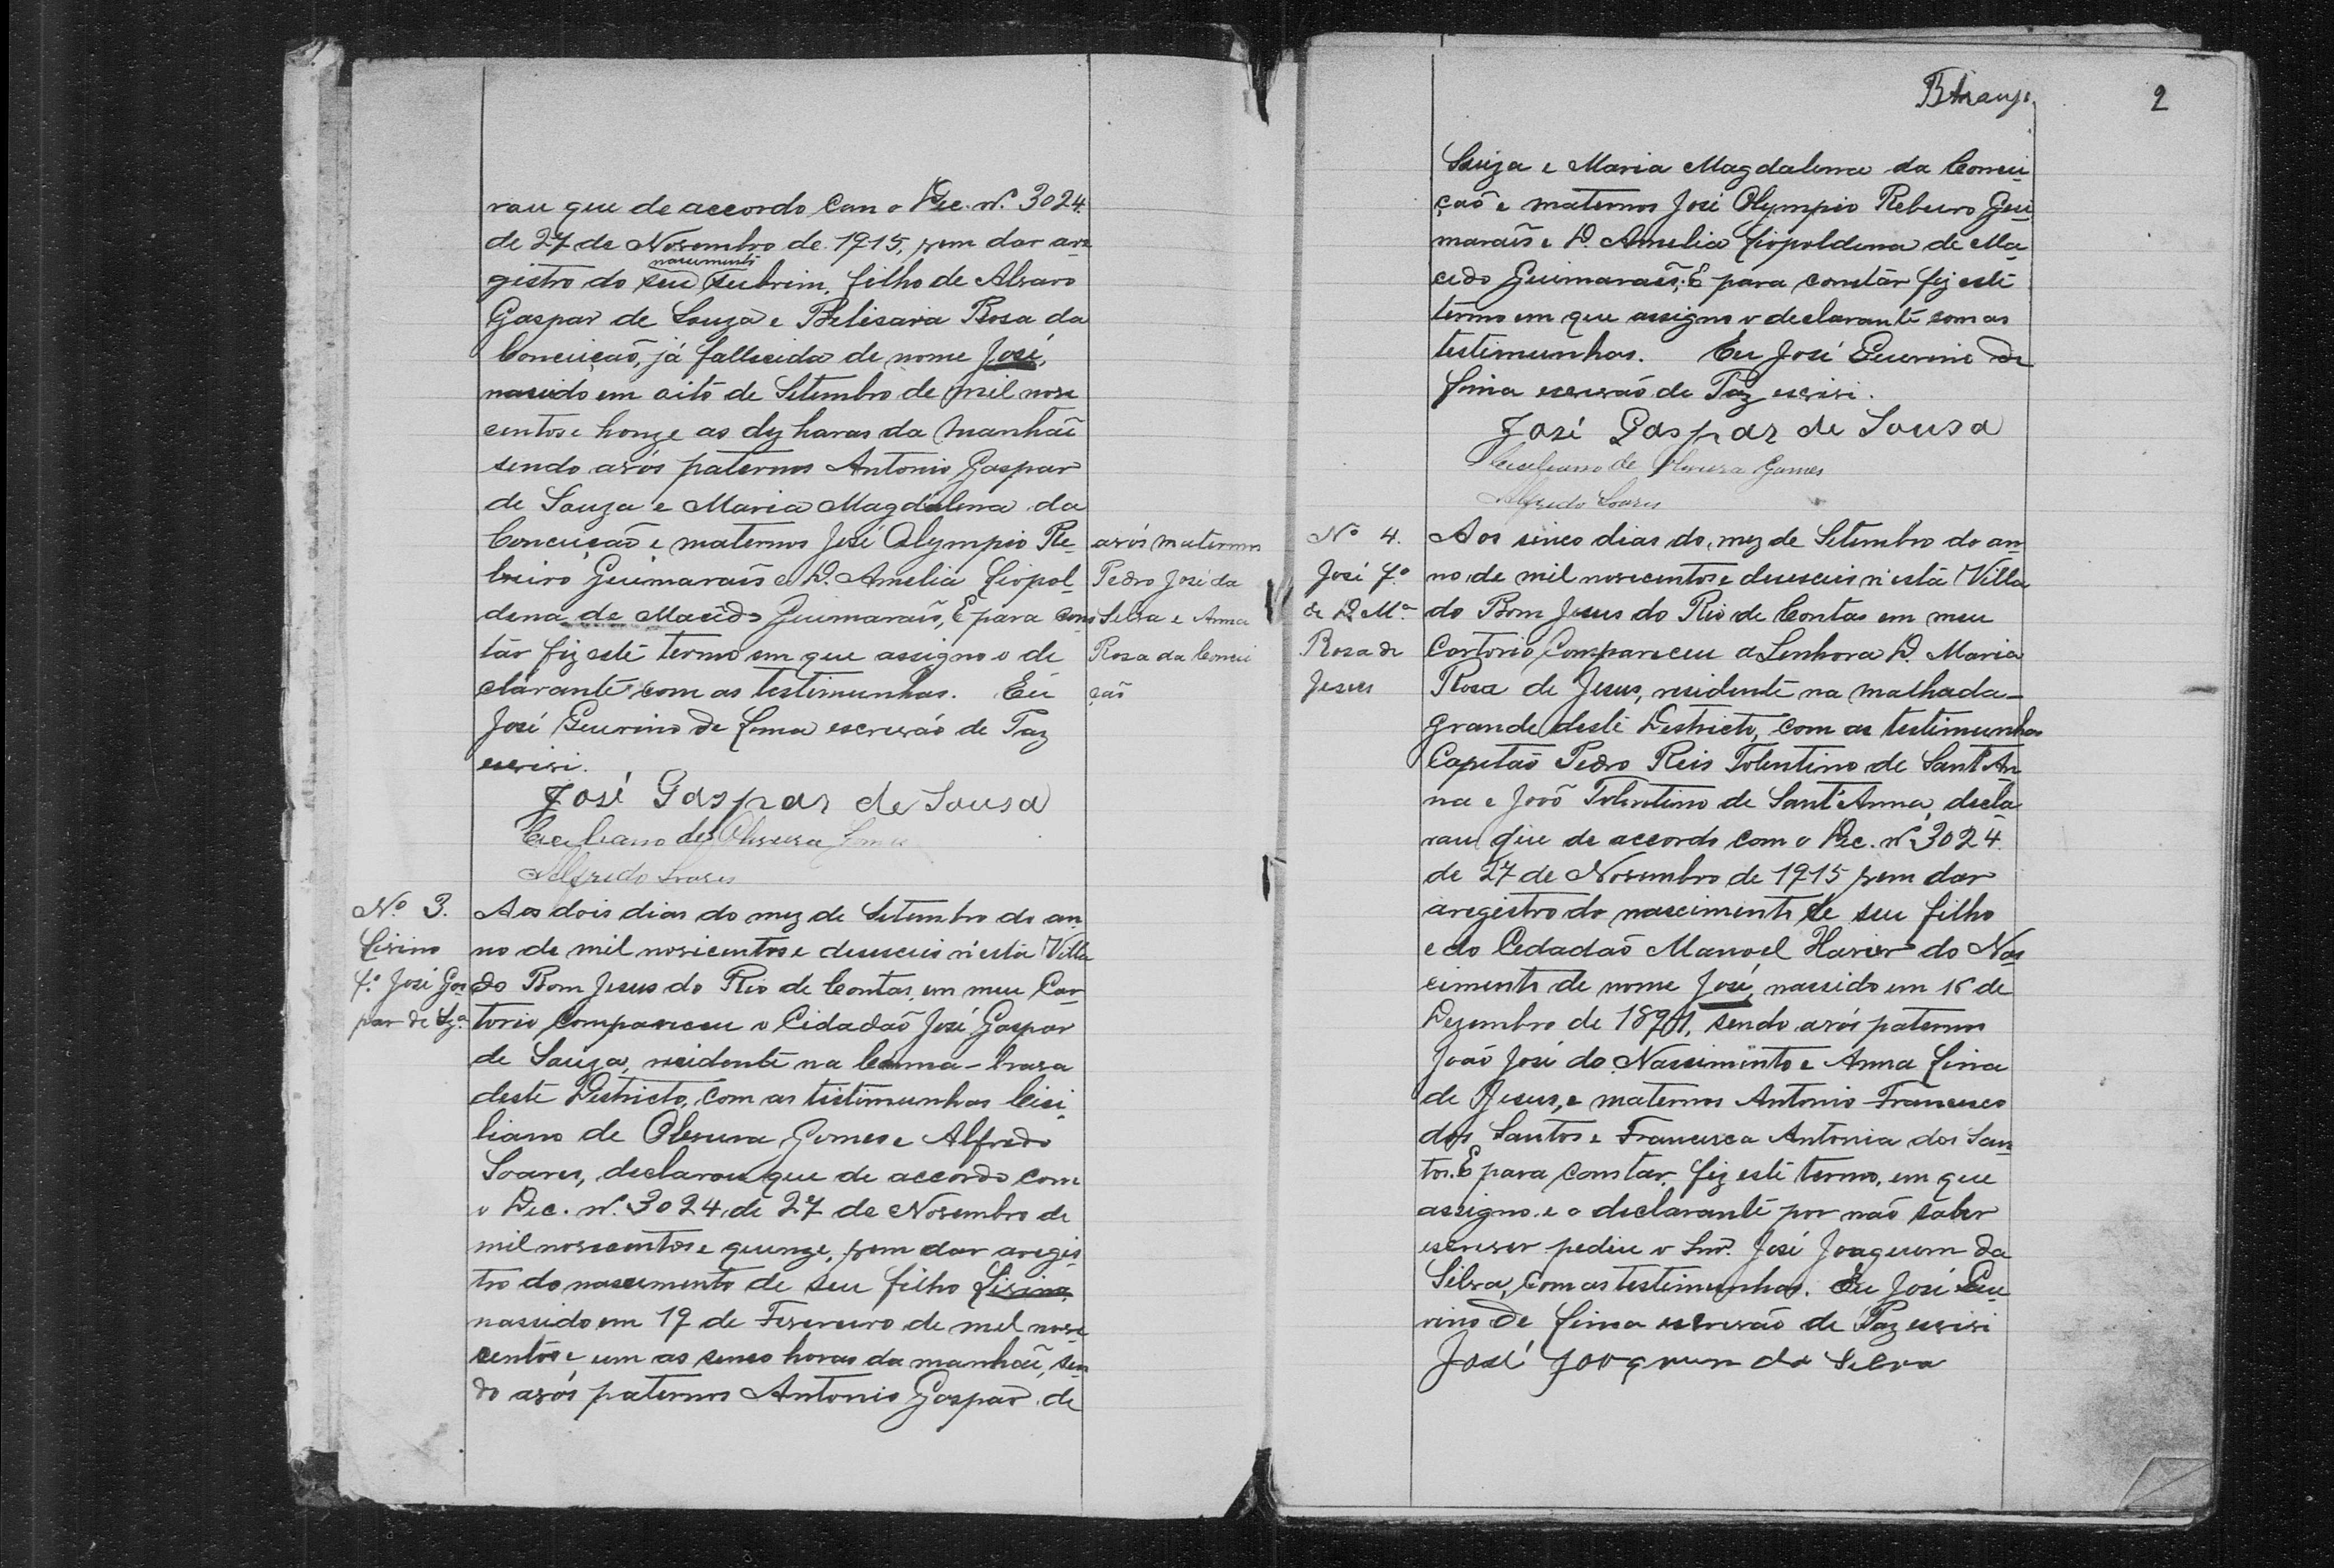 rau que de accordo con o Dec. nº. 3024.
de 27 de Novembro de 1915, vem dar are
nascimento
gistro do seu subrim, filho de Alvaro
Gaspar de Souza e Belisaria Rosa da
Conceição, já fallecida de nome José,
nascido em oito de Setembro de mil nove
centos e honze as dez horas da manhaã
sendo avós paternos Antonio Gaspar
de Souza e Maria Magdalena da
Conceição e maternos José Olympio Re-
beiro Guimarais e D. Amelia Liopol-
dena de Macêdo Guimarais, E para cons
târ fiz este termo em que assigno o de
clarante com as testimunhas. Eu
José Guerino de Lima escrivão de Paz
escrivi.
José Gaspar de Sousa
Ceciliano de Oliveira Gomes
Alfredo Soares
avós maternos
Pedro José da
Silva e Anna
Rosa da Concei
ção
Nº 3.
Lisino
fº. José Gas
par de Sza.
Aos dois dias do mez de Setembro do an
no de mil novicentos e deseseis n'esta Villa
do Bom Jesus do Rio de Contas, em meu Car-
torio, compareceu o Cidadão José Gaspar
de Souza, residente na
deste Destricto, com as testimunhas Cisi
liano de Olivera Gomes e Alfredo
Soares, declarou que de accordo com
o Dec. nº. 3024, de 27 de Novembro de
mil novecentos e quinze, vem dar aregis
tro do nascimento de seu filho Lisino,
nassido em 19 de Fevereiro de mel nove
centos e um as sinco horas da manhaã, sen
do avós paternos Antonio Gaspar de
BAraujo
2
Souza e Maria Magdalena da Concei
ção e maternos José Olympio Rebeiro Gui
marais e D. Amelia Liopoldena de Ma
cedo Guimarais; E para constâr fiz este
termo em que assigno o declarante com as
testimunhas. Eu José Guerino de
Lima escrivão de Paz escrivi.
José Gaspar de Sousa
Ceciliano de Oliveira Gomes
Alfredo Soares
Nº 4.
José fº.
de D. Mª.
Rosa de
Jesus
Aos sinco dias do mez de Setembro do an
no de mil novecentos e deseseis n'esta Villa
do Bom Jesus do Rio de Contas em meu
Cartorio Compareceu a Senhora D. Maria
Rosa de Jesus, residente na malhada-
grande deste Destricto, com as testimunhas
Capitão Pedro Reis Tolentino de Sant'An
na e João Tolentino de Sant'Anna, decla
rau que de accordo com o Dec. nº 3024
de 27 de Novembro de 1915 vem dar
aregistro do nascimento de seu filho
e do Cedadão Manoel Havier do Nas
cimento de nome José, nassido em 16 de
Dezembro de 1891, sendo avós paternos
João José do Nassimento e Anna Liria
de Jesus, e maternos Antonio Francisco
dos Santos e Francisca Antonia dos San
tos. E para constar, fiz este termo, em que
assigno e o declarante por não saber
escrever pediu o Snr. José Joaquim da
Silva, com as testimunhas. Eu José Gue
rino de Lima escrivão de Paz escrivi
José Joaquim da Silva